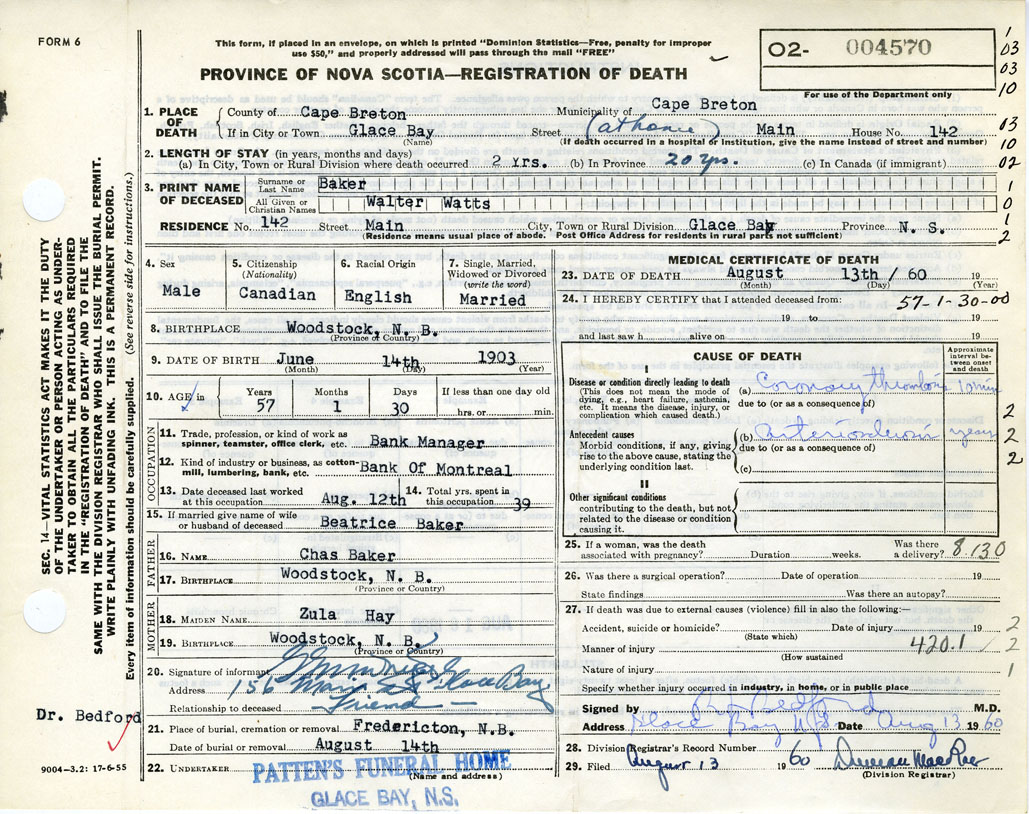 FORM 6
This form, if placed in an envelope, on which is printed "Dominion Statistics—Free, penalty for improper
use $50," and properly addressed will pass through the mail "FREE"
O2- 004570
For use of the Department only
1
03
03
10
PROVINCE OF NOVA SCOTIA—REGISTRATION OF DEATH
1. PLACE OF DEATH
County of Cape Breton Municipality of Cape Breton
If in City or Town Glace Bay Street (at home) Main House No. 142
(Name) (If death occurred in a hospital or Institution, give the name instead of street and number)
03
10
02
2. LENGTH OF STAY (in years, months and days)
(a) In City, Town or Rural Division where death occurred 2 Yrs. (b) In Province 20 yrs. (c) In Canada (if immigrant)
3. PRINT NAME OF DECEASED
Surname or Last Name Baker
All Given or Christian Names Walter Watts
1
0
1
2
RESIDENCE No. 142 Street Main City, Town or Rural Division Glace Bay Province N. S.
(Residence means usual place of abode. Post Office Address for residents in rural parts not sufficient)
4. Sex
Male
5. Citizenship
(Nationality)
Canadian
6. Racial Origin
English
7. Single, Married, Widowed or Divorced
(write the word)
Married
8. BIRTHPLACE Woodstock, N. B.
(Province or Country)
9. DATE OF BIRTH June 14th 1903
(Month) (Day) (Year)
10. AGE in
Years 57
Months 1
Days 30
If less than one day old
hrs. or min.
OCCUPATION
11. Trade, profession, or kind of work as spinner, teamster, office clerk, etc. Bank Manager
12. Kind of industry or business, as cotton-mill, lumbering, bank, etc. Bank Of Montreal
13. Date deceased last worked at this occupation Aug. 12th
14. Total yrs. spent in this occupation 39
15. If married give name of wife or husband of deceased Beatrice Baker
FATHER
16. NAME Chas Baker
17. BIRTHPLACE Woodstock, N. B.
(Province or Country)
MOTHER
18. MAIDEN NAME Zula Hay
19. BIRTHPLACE Woodstock, N. B.
(Province or Country)
20. Signature of informant
Address 156 Main St Glace Bay
Relationship to deceased — Friend —
21. Place of burial, cremation or removal Fredericton, N.B.
Date of burial or removal August 14th
22. UNDERTAKER PATTEN'S FUNERAL HOME
(Name and address)
GLACE BAY, N.S.
MEDICAL CERTIFICATE OF DEATH
23. DATE OF DEATH August 13th / 60 19
(Month) (Day) (Year)
24. I HEREBY CERTIFY that I attended deceased from: 57-1-30-00
19 to 19
and last saw h alive on 19
CAUSE OF DEATH
Approximate interval between onset and death
I
Disease or condition directly leading to death
(This does not mean the mode of dying, e.g., heart failure, asthenia, etc. It means the disease, injury, or complication which caused death.)
(a) Coronary thrombosis 10 min
due to (or as a consequence of)
Antecedent causes
Morbid conditions, if any, giving rise to the above cause, stating the underlying condition last.
(b) Arteriosclerosis years
due to (or as a consequence of)
(c)
2
2
2
II
Other significant conditions
contributing to the death, but not related to the disease or condition causing it.
25. If a woman, was the death associated with pregnancy? Duration weeks. Was there a delivery? 8.130
26. Was there a surgical operation? Date of operation 19
State findings Was there an autopsy?
27. If death was due to external causes (violence) fill in also the following:—
Accident, suicide or homicide? Date of injury 19 2
(State which)
Manner of injury 420.1 / 2
(How sustained
Nature of injury 1
Specify whether injury occurred in industry, in home, or in public place
Signed by Bedford M.D.
Address Glace Bay NS Date Aug 13 1960
28. Division Registrar's Record Number
29. Filed August 13 1960 Duncan MacRae
(Division Registrar)
SEC. 14—VITAL STATISTICS ACT MAKES IT THE DUTY
OF THE UNDERTAKER OR PERSON ACTING AS UNDER-
TAKER TO OBTAIN ALL THE PARTICULARS REQUIRED
IN THE "REGISTRATION OF DEATH" AND FILE THE
SAME WITH THE DIVISION REGISTRAR WHO SHALL ISSUE THE BURIAL PERMIT.
WRITE PLAINLY WITH UNFADING INK. THIS IS A PERMANENT RECORD.
Every item of information should be carefully supplied. (See reverse side for instructions.)
Dr. Bedford
9004-3.2: 17-6-55